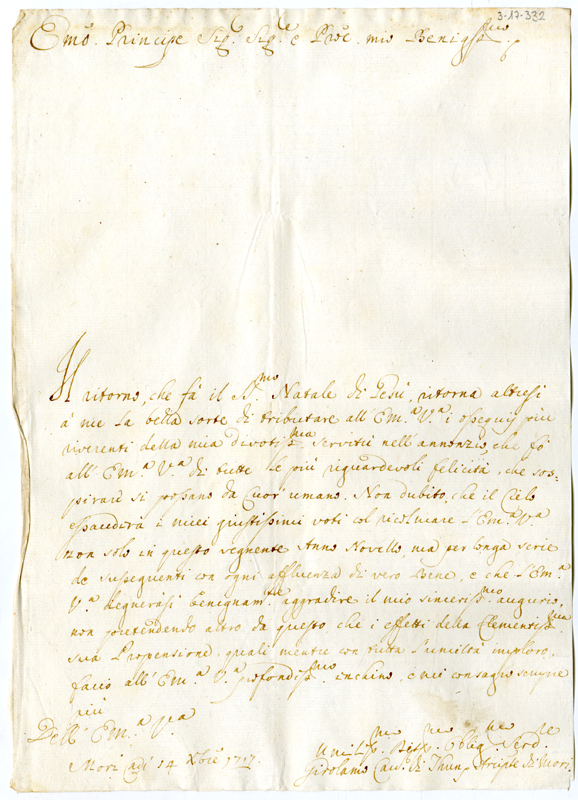 3-17-332
Emo. Principe Sig.r Sig.re e Pro'e mio Benigmo.
Il ritorno, che fà il S.mo Natale di Gesù, ritorna altresi
à me la bella sorte di tributare all'Em.a V.a i ossequij piu
riverenti della mia divotis.ma servitù nell'annonzio, che fò
all'Em.a V.a di tutte le più riguardevoli felicità, che sos=
pirare si possano da Cuor umano. Non dubito, che il Cielo
esaudirà i miei giustissimi voti col ricolmare l'Em.a V.a
non solo in questo vegnente Anno Novello, ma per longa serie
de susseguenti con ogni affluenza di vero Bene, e che l'Em.a
V.a degnerasi benignam.te aggradire il mio sinceriss.mo augurio,
non pretendendo altro da questo che i effetti della Clementis.ma
sua Propensione quali mentre con tutta l'umiltà imploro,
facio all'Em.a V.a profondis.mo inchino, e mi consagro sempre
più
Dell'Em.a V.a
Mori adi 14 Xbre 1717.
Umilis.mo Oblig.mo Serd.re
Girolamo di Thun Mori